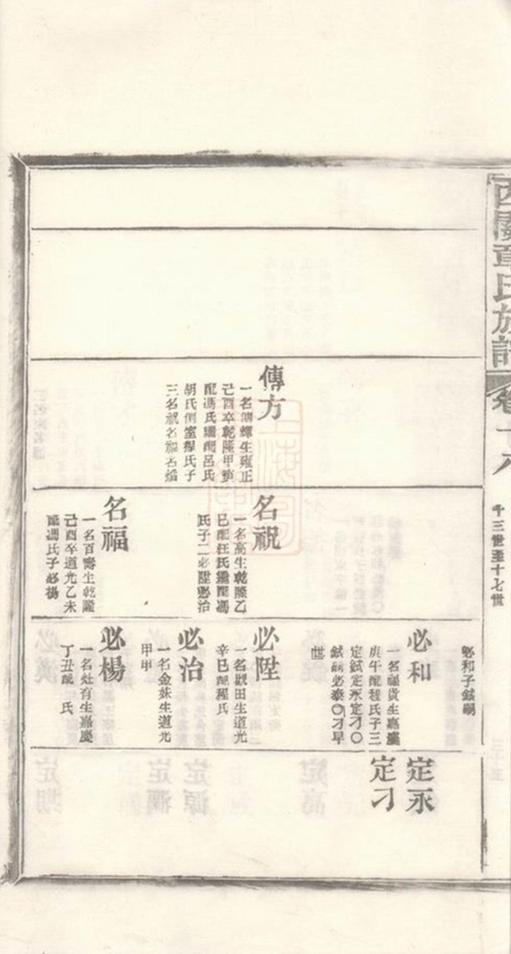 西關章氏族譜
卷十八
十三世至十七世
必和子鉞嗣
傳方
生雍正
己酉卒乾隆甲寅
配馮氏繼配呂氏
胡氏側室程氏子
三名祝名福名
名祝
一名高生乾隆乙
巳配汪氏繼配馮
氏子二必陞必治
名福
一名百壽生乾隆
己酉卒道光乙未
配馮氏子必楊
必和
一名 貴生嘉慶
庚午配程氏子三
定鉞定承定刁〇
鉞嗣必泰〇刁早
世
必陞
一名 田生道光
辛巳配程氏
必治
一名金妹生道光
甲申
必楊
一名灶有生嘉慶
丁丑配 氏
定承
定刁